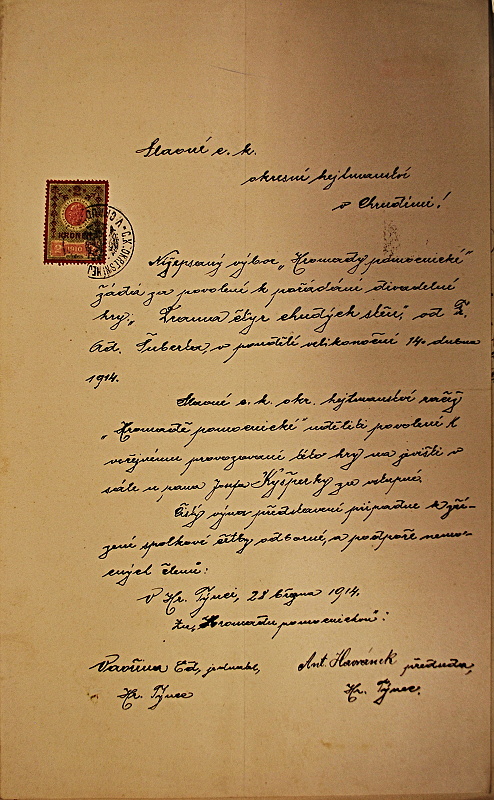 Slavné c. k.
okresní hejtmanství
v Chrudimi!
KORUNA
1910
C.K. OKRESNÍ HEJ
Nížepsaný výbor „Hromady pomocnické“
žádá za povolení k pořádání divadelné
hry: „Drama čtyr chudých stěn“, od F.
Ad. Šuberta, v pondělí velikonoční 14. dubna
1914.
Slavné c. k. okr. hejtmanství račiž
„Hromadě pomocnické“ uděliti povolení k
veřejnému provozování této hry na jevišti v
sále u pana Josefa Kyšperky za vstupné.
Čistý výnos představení připadne k zří-
zené spolkové četby odborné, a podpoře nemo-
cných členů:
V Hr. Týnci, 28 března 1914.
Za „Hromadu pomocnickou“:
Vavřina Ed, jednatel, Ant. Havránek předseda,
Hr. Týnec Hr. Týnec.